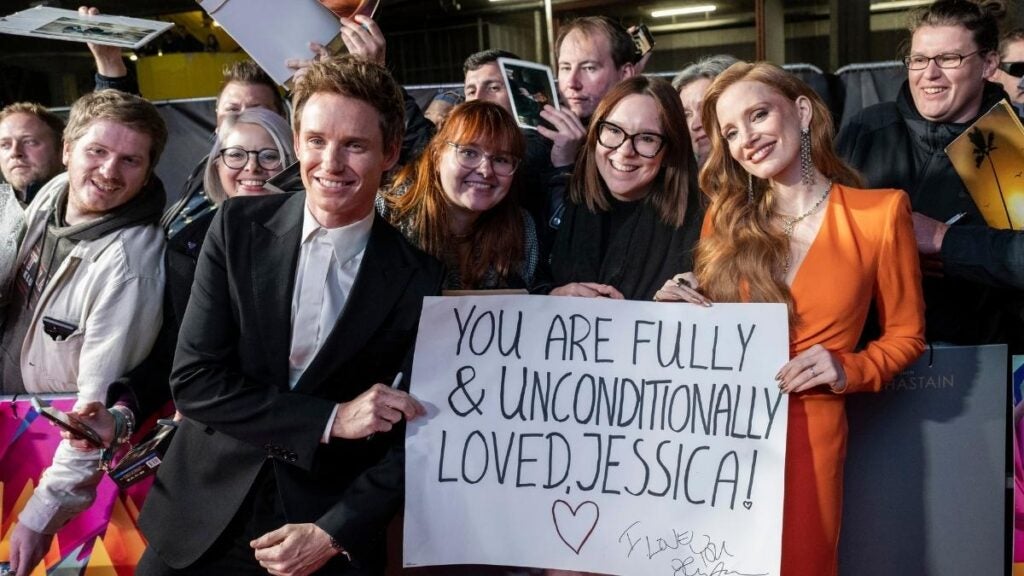 YOU ARE FULLY
& UNCONDITIONALLY
LOVED, JESSICA!
I LOVE YOU
CHASTAIN